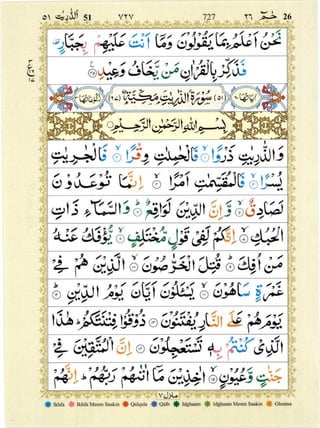 ٥١ الذّٰریٰت 51 ٧٢٧ 727 ٢٦ حٰمٓ 26
نَحْنُ اَعْلَمُ بِمَا یَقُوْلُوْنَ وَمَاۤ اَنْتَ عَلَیْهِمْ بِجَبَّارٍ
فَذَكِّرْ بِالْقُرْاٰنِ مَنْ یَّخَافُ وَعِیْدِ
(٥١) سُوْرَةُ الذّٰرِیٰتِ مَكِّیَّةٌ
بِسْمِ اللّٰهِ الرَّحْمٰنِ الرَّحِیْمِ
وَالذّٰرِیٰتِ ذَرْوًا ۝ فَالْحٰمِلٰتِ وِقْرًا ۝ فَالْجٰرِیٰتِ
یُسْرًا ۝ فَالْمُقَسِّمٰتِ اَمْرًا ۝ اِنَّمَا تُوْعَدُوْنَ
لَصَادِقٌ ۝ وَّاِنَّ الدِّیْنَ لَوَاقِعٌ ۝ وَالسَّمَآءِ ذَاتِ
الْحُبُكِ ۝ اِنَّكُمْ لَفِیْ قَوْلٍ مُّخْتَلِفٍ ۝ یُّؤْفَكُ عَنْهُ
مَنْ اُفِكَ ۝ قُتِلَ الْخَرّٰصُوْنَ ۝ الَّذِیْنَ هُمْ فِیْ
غَمْرَةٍ سَاهُوْنَ ۝ یَسْـَٔلُوْنَ اَیَّانَ یَوْمُ الدِّیْنِ ۝
یَوْمَ هُمْ عَلَی النَّارِ یُفْتَنُوْنَ ۝ ذُوْقُوْا فِتْنَتَكُمْ هٰذَا
الَّذِیْ كُنْتُمْ بِهٖ تَسْتَعْجِلُوْنَ ۝ اِنَّ الْمُتَّقِیْنَ فِیْ
جَنّٰتٍ وَّعُیُوْنٍ ۝ اٰخِذِیْنَ مَاۤ اٰتٰىهُمْ رَبُّهُمْ اِنَّهُمْ
منزل ٧
Ikhfa Ikhfa Meem Saakin Qalqala Qalb Idghaam Idghaam Meem Saakin Ghunna